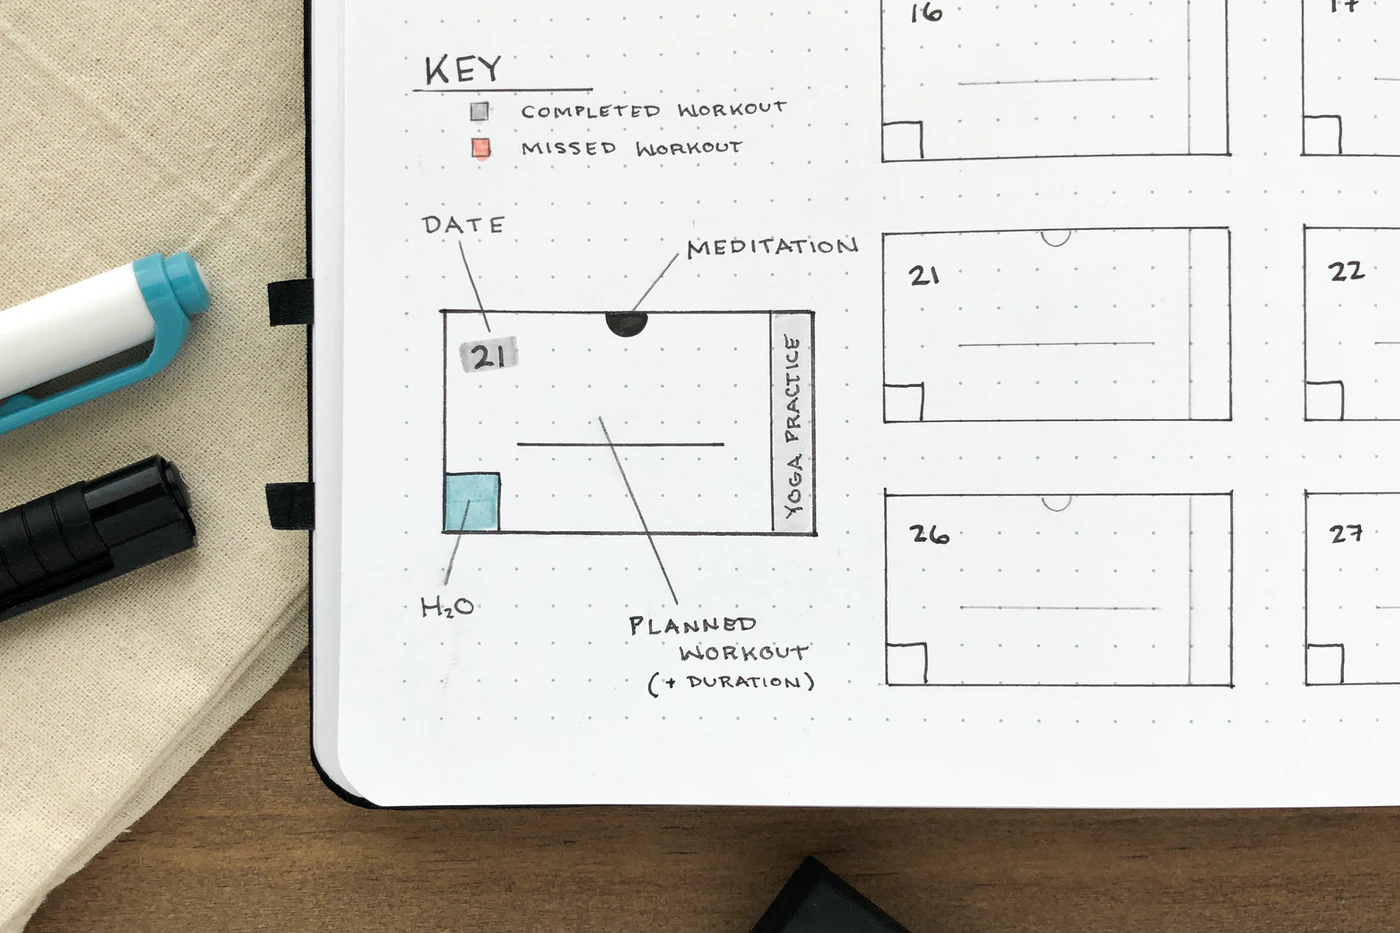 KEY
COMPLETED WORKOUT
MISSED WORKOUT
DATE
MEDITATION
21
YOGA PRACTICE
H₂O
PLANNED
WORKOUT
(+ DURATION)
16
17
21
22
26
27